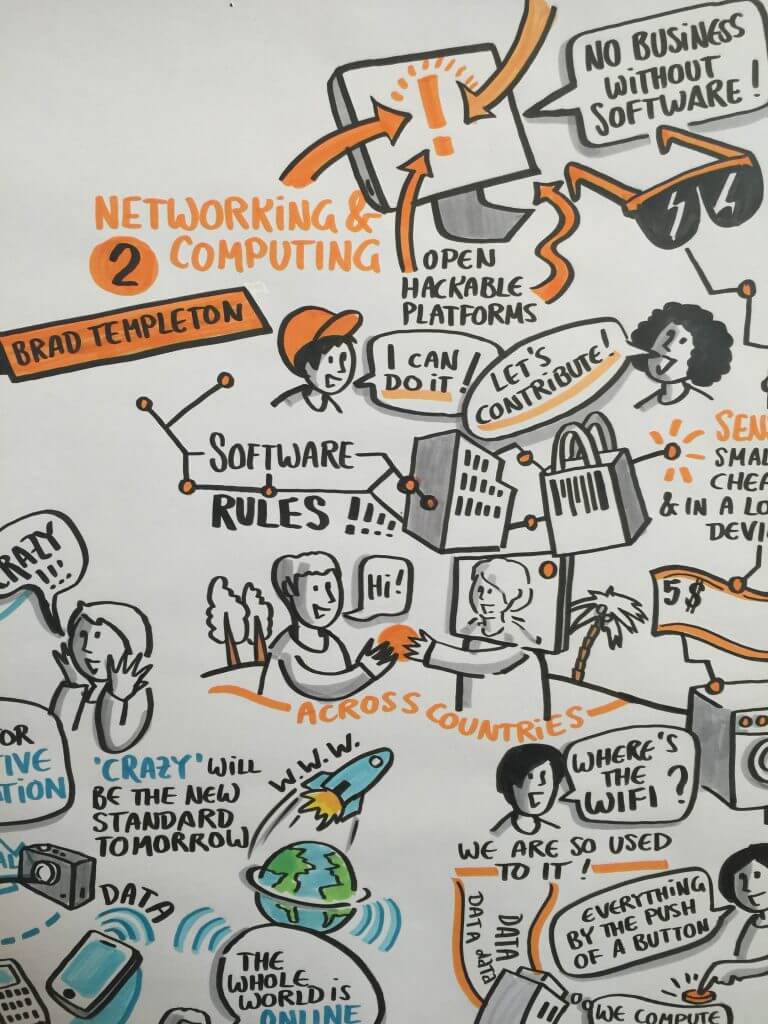 NO BUSINESS
WITHOUT
SOFTWARE!
NETWORKING &
2 COMPUTING
OPEN
HACKABLE
PLATFORMS
BRAD TEMPLETON
I CAN
DO IT!
LET'S
CONTRIBUTE!
SOFTWARE
RULES !!!!
SMAL
& IN A LO
CRAZY
!!!
Hi!
5$
ACROSS COUNTRIES
'CRAZY' WILL
BE THE NEW
STANDARD
TOMORROW
W.W.W.
WHERE'S
THE
WIFI?
WE ARE SO USED
TO IT!
DATA
DATA
DATA
DATA
EVERYTHING
BY THE PUSH
OF A BUTTON
THE
WHOLE
WORLD IS
ONLINE
WE COMPUTE